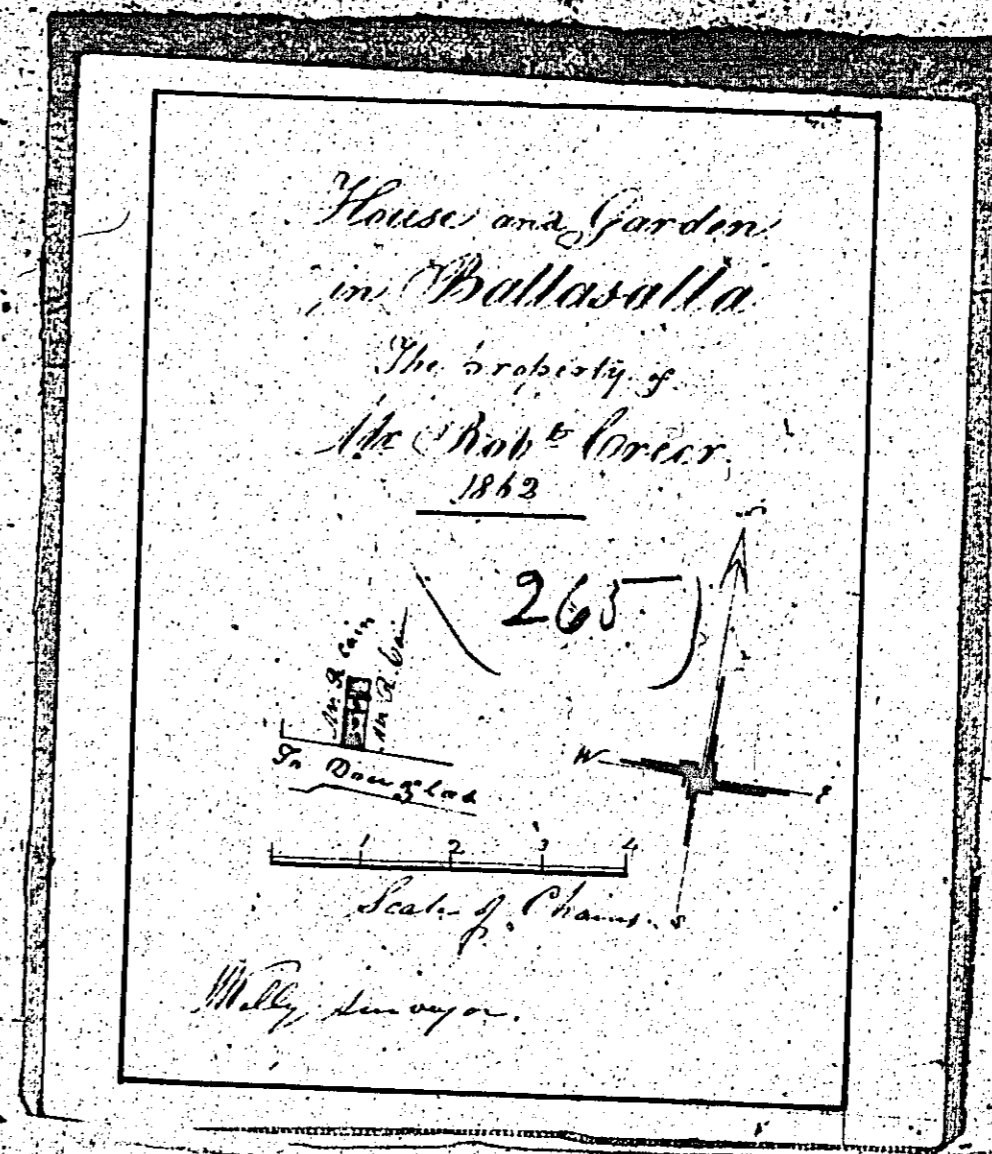 House and Garden
in Ballasalla
The Property of
Mr Robt Creer.
1862
(265)
Mr R Cain
Mr R Cain
To Douglas
W
E
S
1 2 3 4
Scale of Chains.
Surveyor.